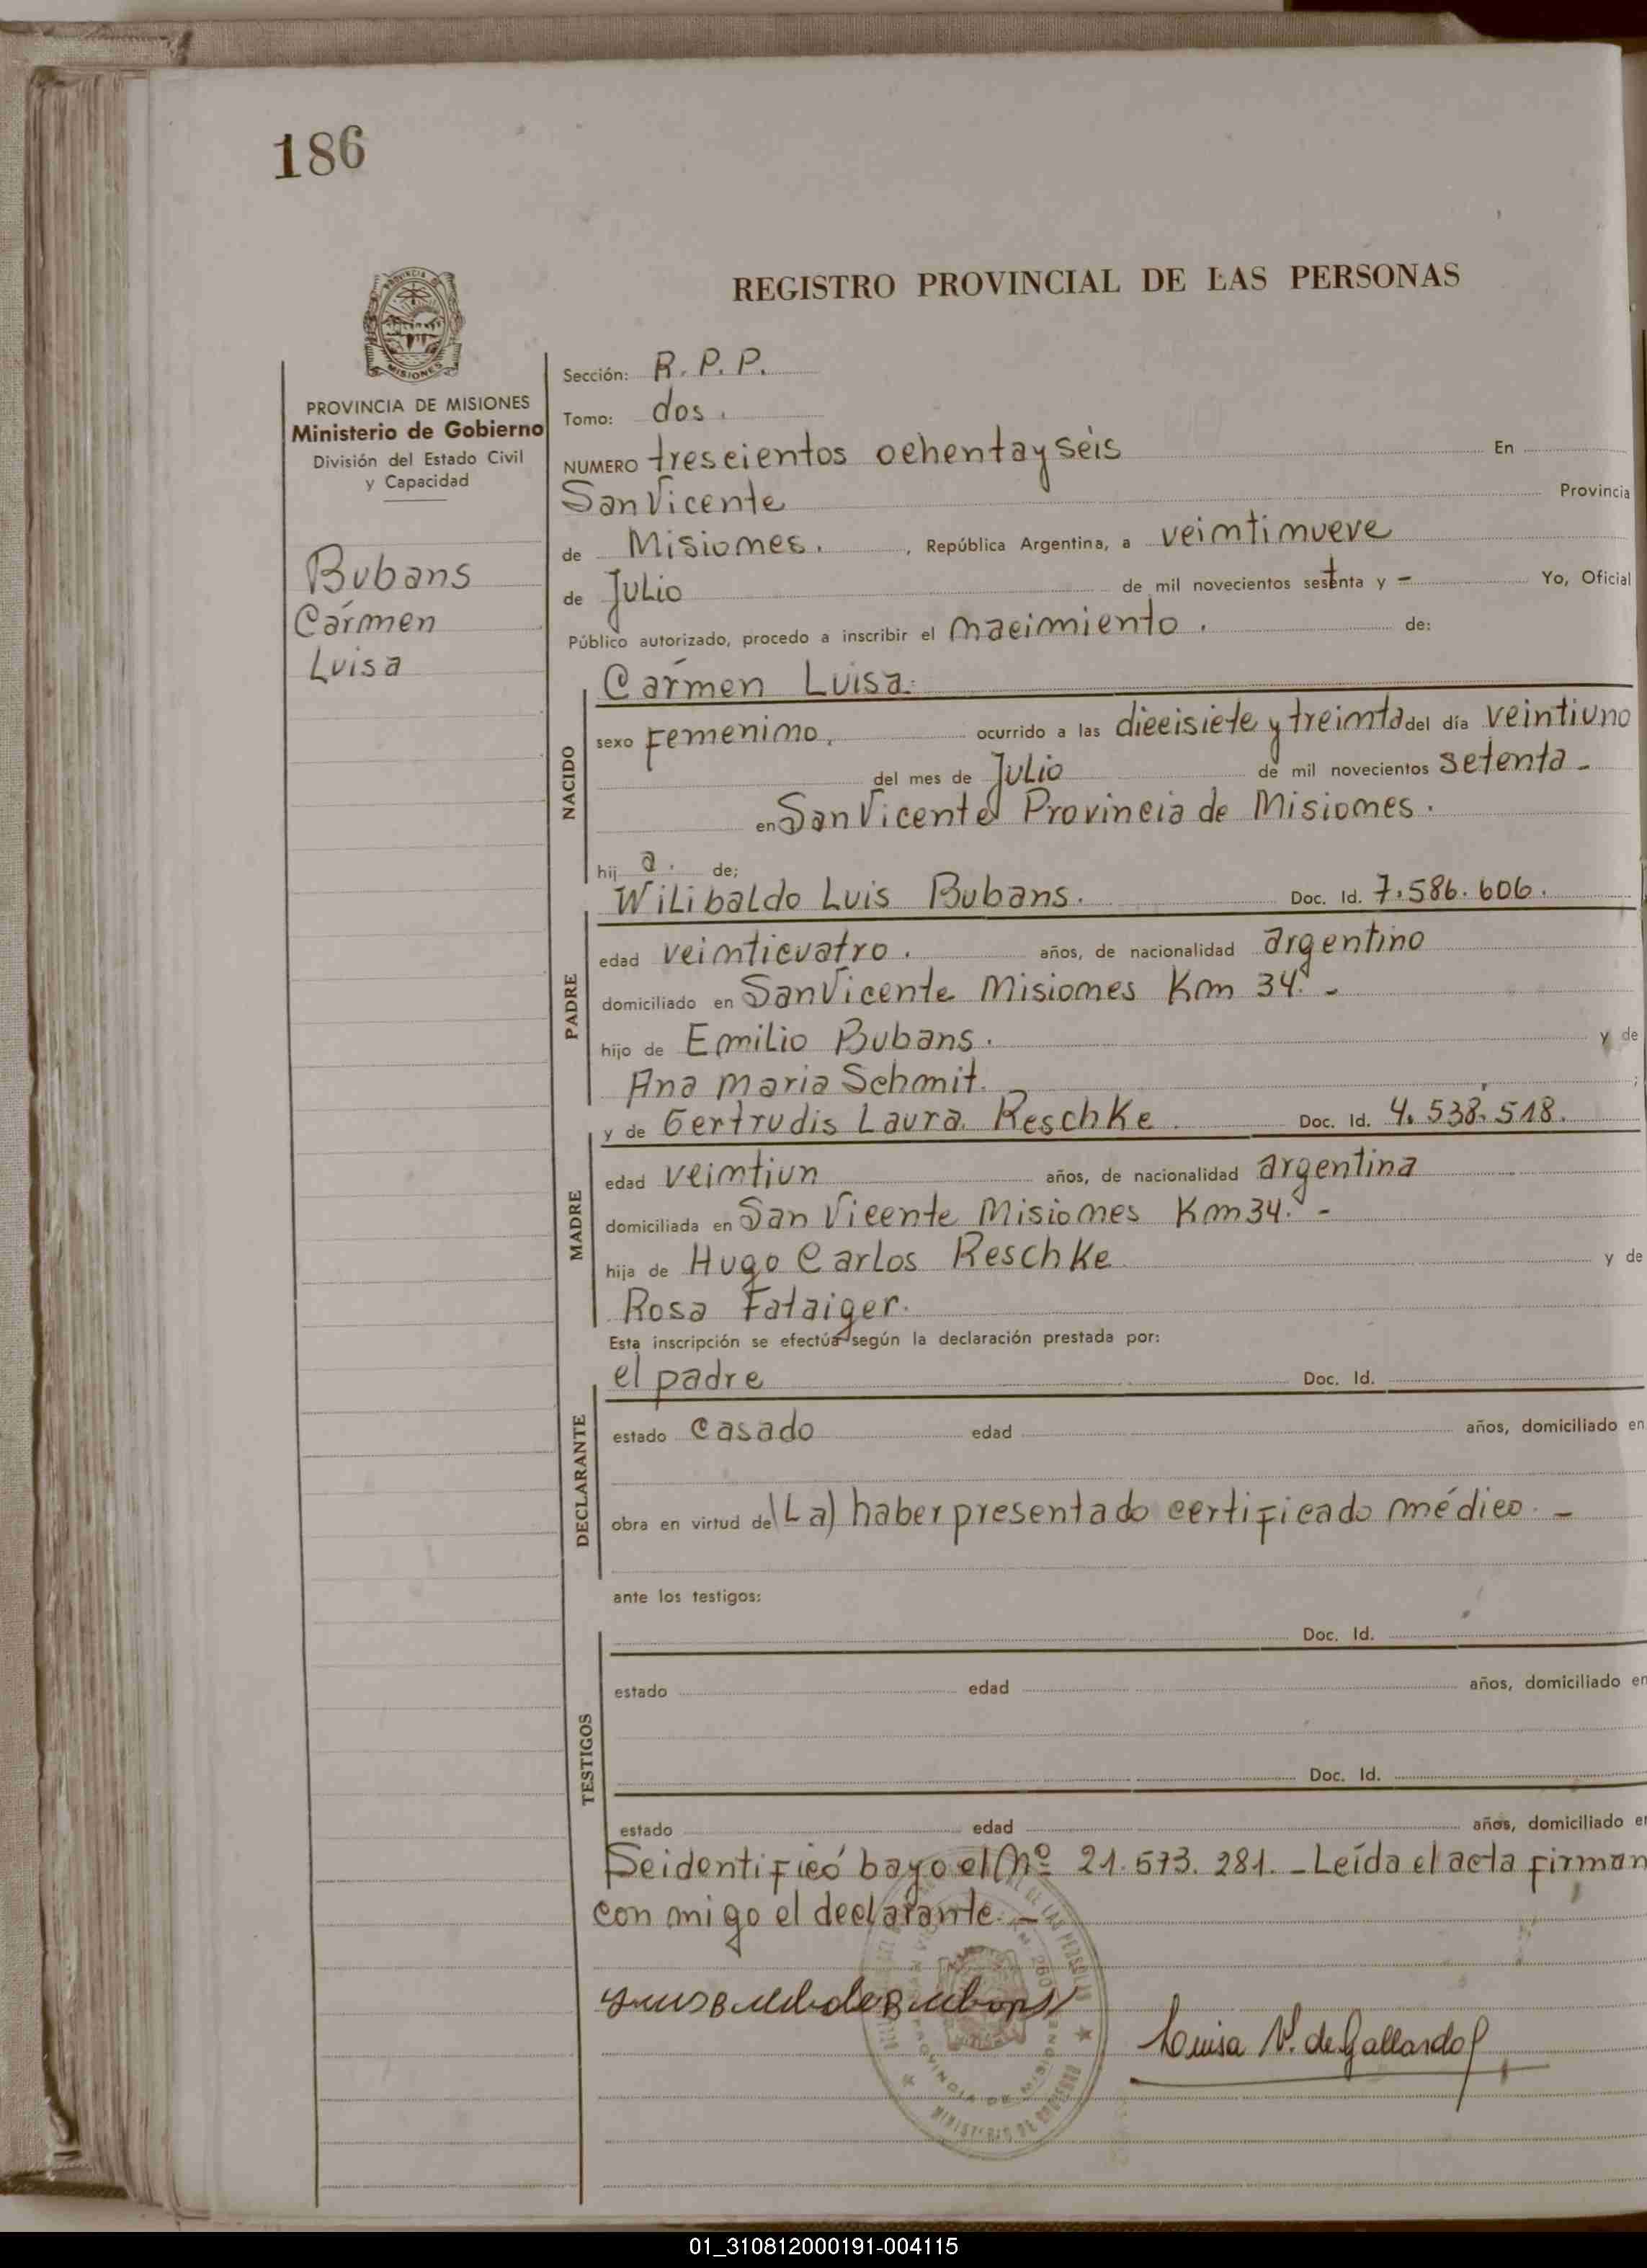 186
REGISTRO PROVINCIAL DE LAS PERSONAS
PROVINCIA
MISIONES
PROVINCIA DE MISIONES
Ministerio de Gobierno
División del Estado Civil
y Capacidad
Bubans
Cármen
Luisa
Sección: R. P. P.
Tomo: dos.
NUMERO trescientos ochentay seis En
San Vicente Provincia
de Misiones. , República Argentina, a veintinueve
de Julio de mil novecientos setenta y - Yo, Oficial
Público autorizado, procedo a inscribir el nacimiento. de:
Cármen Luisa.
NACIDO
sexo Femenino. ocurrido a las diecisiete y treinta del día veintiuno
del mes de Julio de mil novecientos setenta -
en San Vicente Provincia de Misiones.
hij a. de;
Wilibaldo Luis Bubans. Doc. Id. 7.586.606.
PADRE
edad veinticuatro. años, de nacionalidad argentino
domiciliado en San Vicente Misiones Km 34. -
hijo de Emilio Bubans. y de
Ana Maria Schmit. ;
y de Gertrudis Laura Reschke. Doc. Id. 4.538.518.
MADRE
edad veintiun años, de nacionalidad argentina
domiciliada en San Vicente Misiones Km 34. -
hija de Hugo Carlos Reschke y de
Rosa Fataiger.
Esta inscripción se efectúa según la declaración prestada por:
el padre Doc. Id.
DECLARANTE
estado casado edad años, domiciliado en
obra en virtud de (La) haber presentado certificado médico. -
ante los testigos:
Doc. Id.
TESTIGOS
estado edad años, domiciliado en
Doc. Id.
estado edad años, domiciliado en
Se identificó bajo el Nº 21.573.281. - Leída el acta firman
con migo el declarante. -
PROVINCIA DE MISIONES
MINISTERIO DE GOBIERNO
Luisa V. de Gallardo
01_310812000191-004115